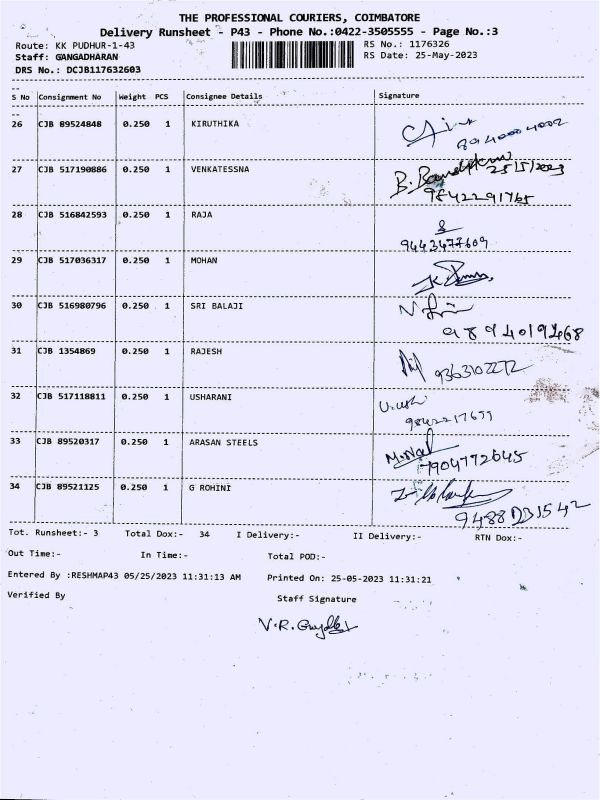 THE PROFESSIONAL COURIERS, COIMBATORE
Delivery Runsheet - P43 - Phone No.:0422-3505555 - Page No.:3
Route: KK PUDHUR-1-43 RS No.: 1176326
Staff: GANGADHARAN RS Date: 25-May-2023
DRS No.: DCJB117632603
S No Consignment No Weight PCS Consignee Details Signature
26 CJB 89524848 0.250 1 KIRUTHIKA
8940004002
27 CJB 517190886 0.250 1 VENKATESSNA 25/5/2023
9842291765
28 CJB 516842593 0.250 1 RAJA
9443477609
29 CJB 517036317 0.250 1 MOHAN
30 CJB 516980796 0.250 1 SRI BALAJI
9894019468
31 CJB 1354869 0.250 1 RAJESH
9363102272
32 CJB 517118811 0.250 1 USHARANI
33 CJB 89520317 0.250 1 ARASAN STEELS
7904772645
34 CJB 89521125 0.250 1 G ROHINI
Tot. Runsheet:- 3 Total Dox:- 34 I Delivery:- II Delivery:- RTN Dox:-
Out Time:- In Time:- Total POD:-
Entered By :RESHMAP43 05/25/2023 11:31:13 AM Printed On: 25-05-2023 11:31:21
Verified By Staff Signature